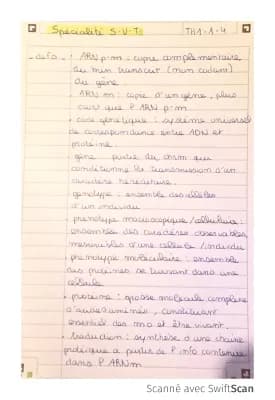 Spécialité S.V.T
TH1-1-4
- défs - • ARN p-m : copie complémentaire
du brin transcrit (non codant)
du gène
• ARN m : copie d'un gène, plus
court que l'ARN p-m
• code génétique : système universel
de correspondance entre ADN et
protéine.
• gène : partie du chrm qui
conditionne la transmission d'un
caractère héréditaire.
• génotype : ensemble des allèles
d'un individu
• phénotype macroscopique / cellulaire :
ensemble des caractères observables,
mesurables d'une cellule / individu
• phénotype moléculaire : ensemble
des protéines se trouvant dans une
cellule
• protéine : grosse molécule complexe
d'acides aminés, constituant
essentiel des mo et être vivant.
• traduction : synthèse d'une chaîne
protéique à partir de l'info contenue
dans l'ARNm
Scanné avec SwiftScan